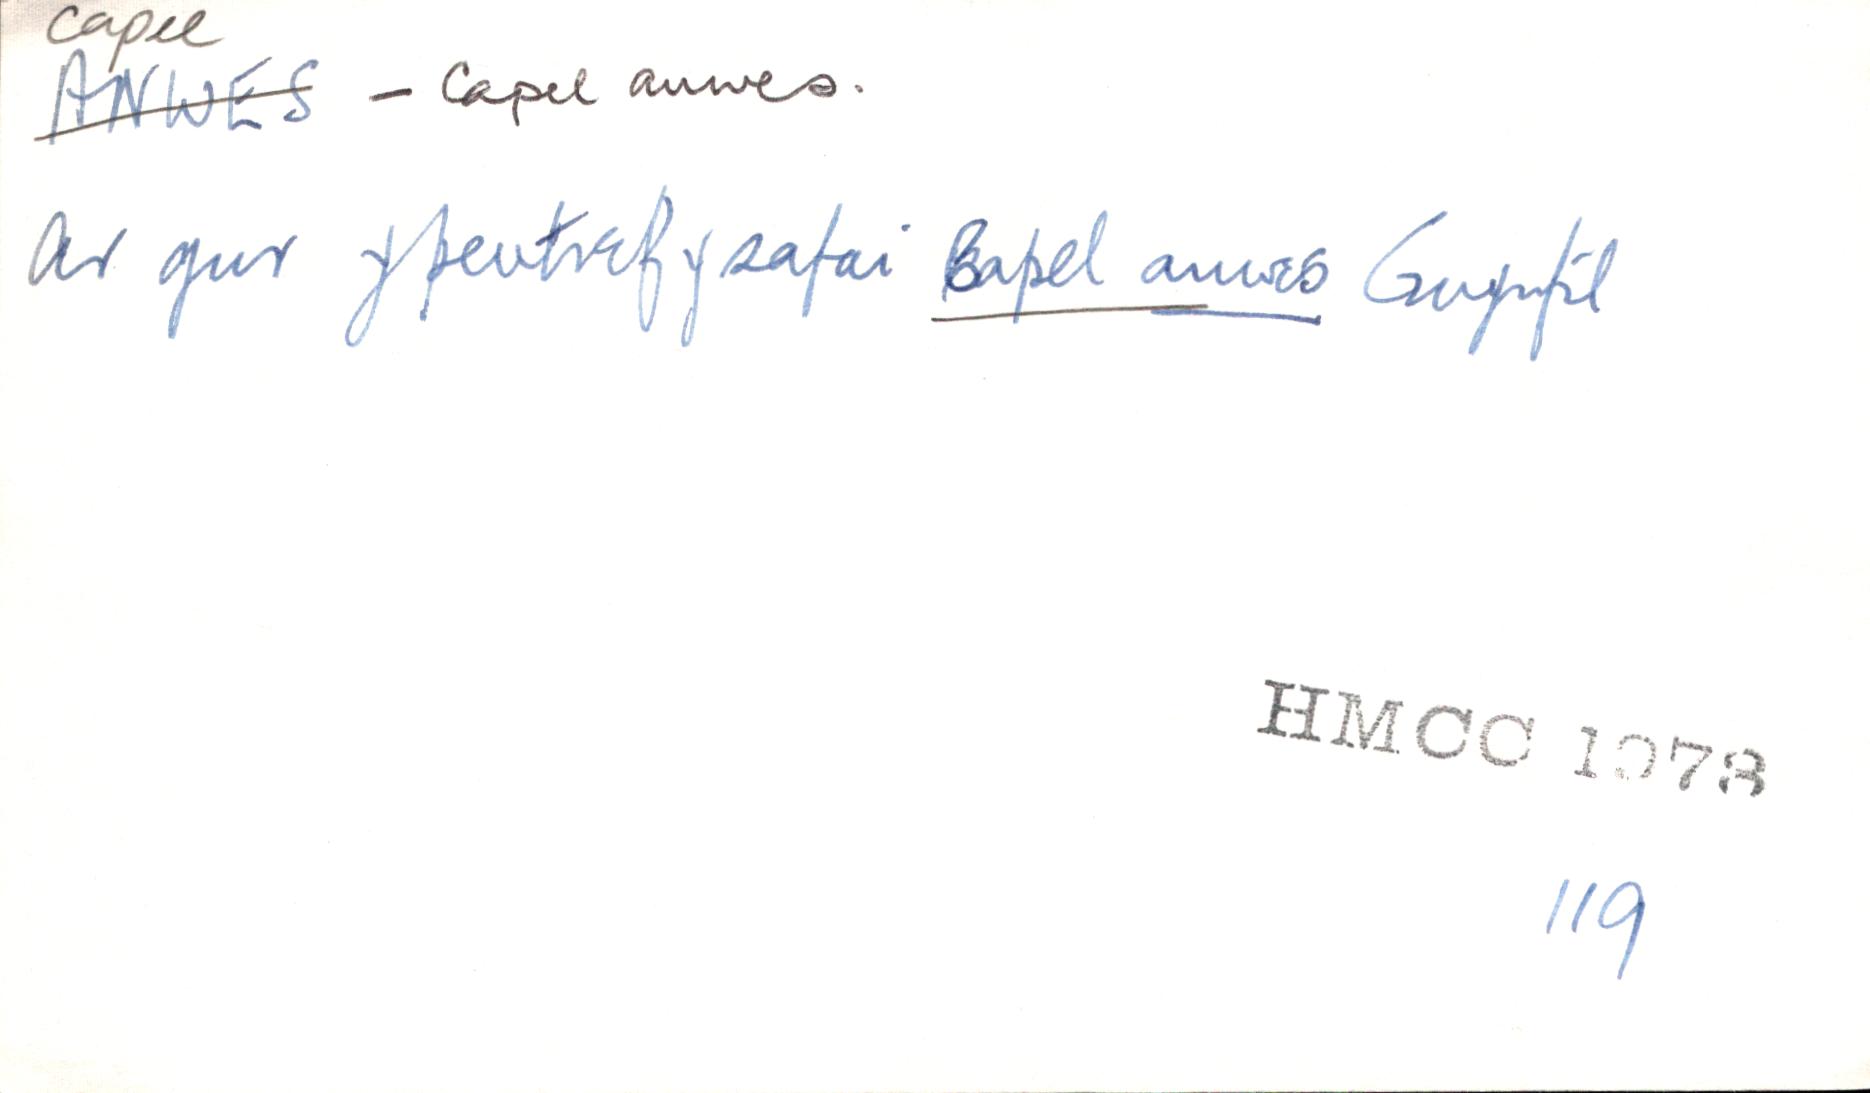 capel
ANWES - Capel anwes.
Ar gwr y pentref y safai Capel anwes Gwynfil
HMCC 1973
119